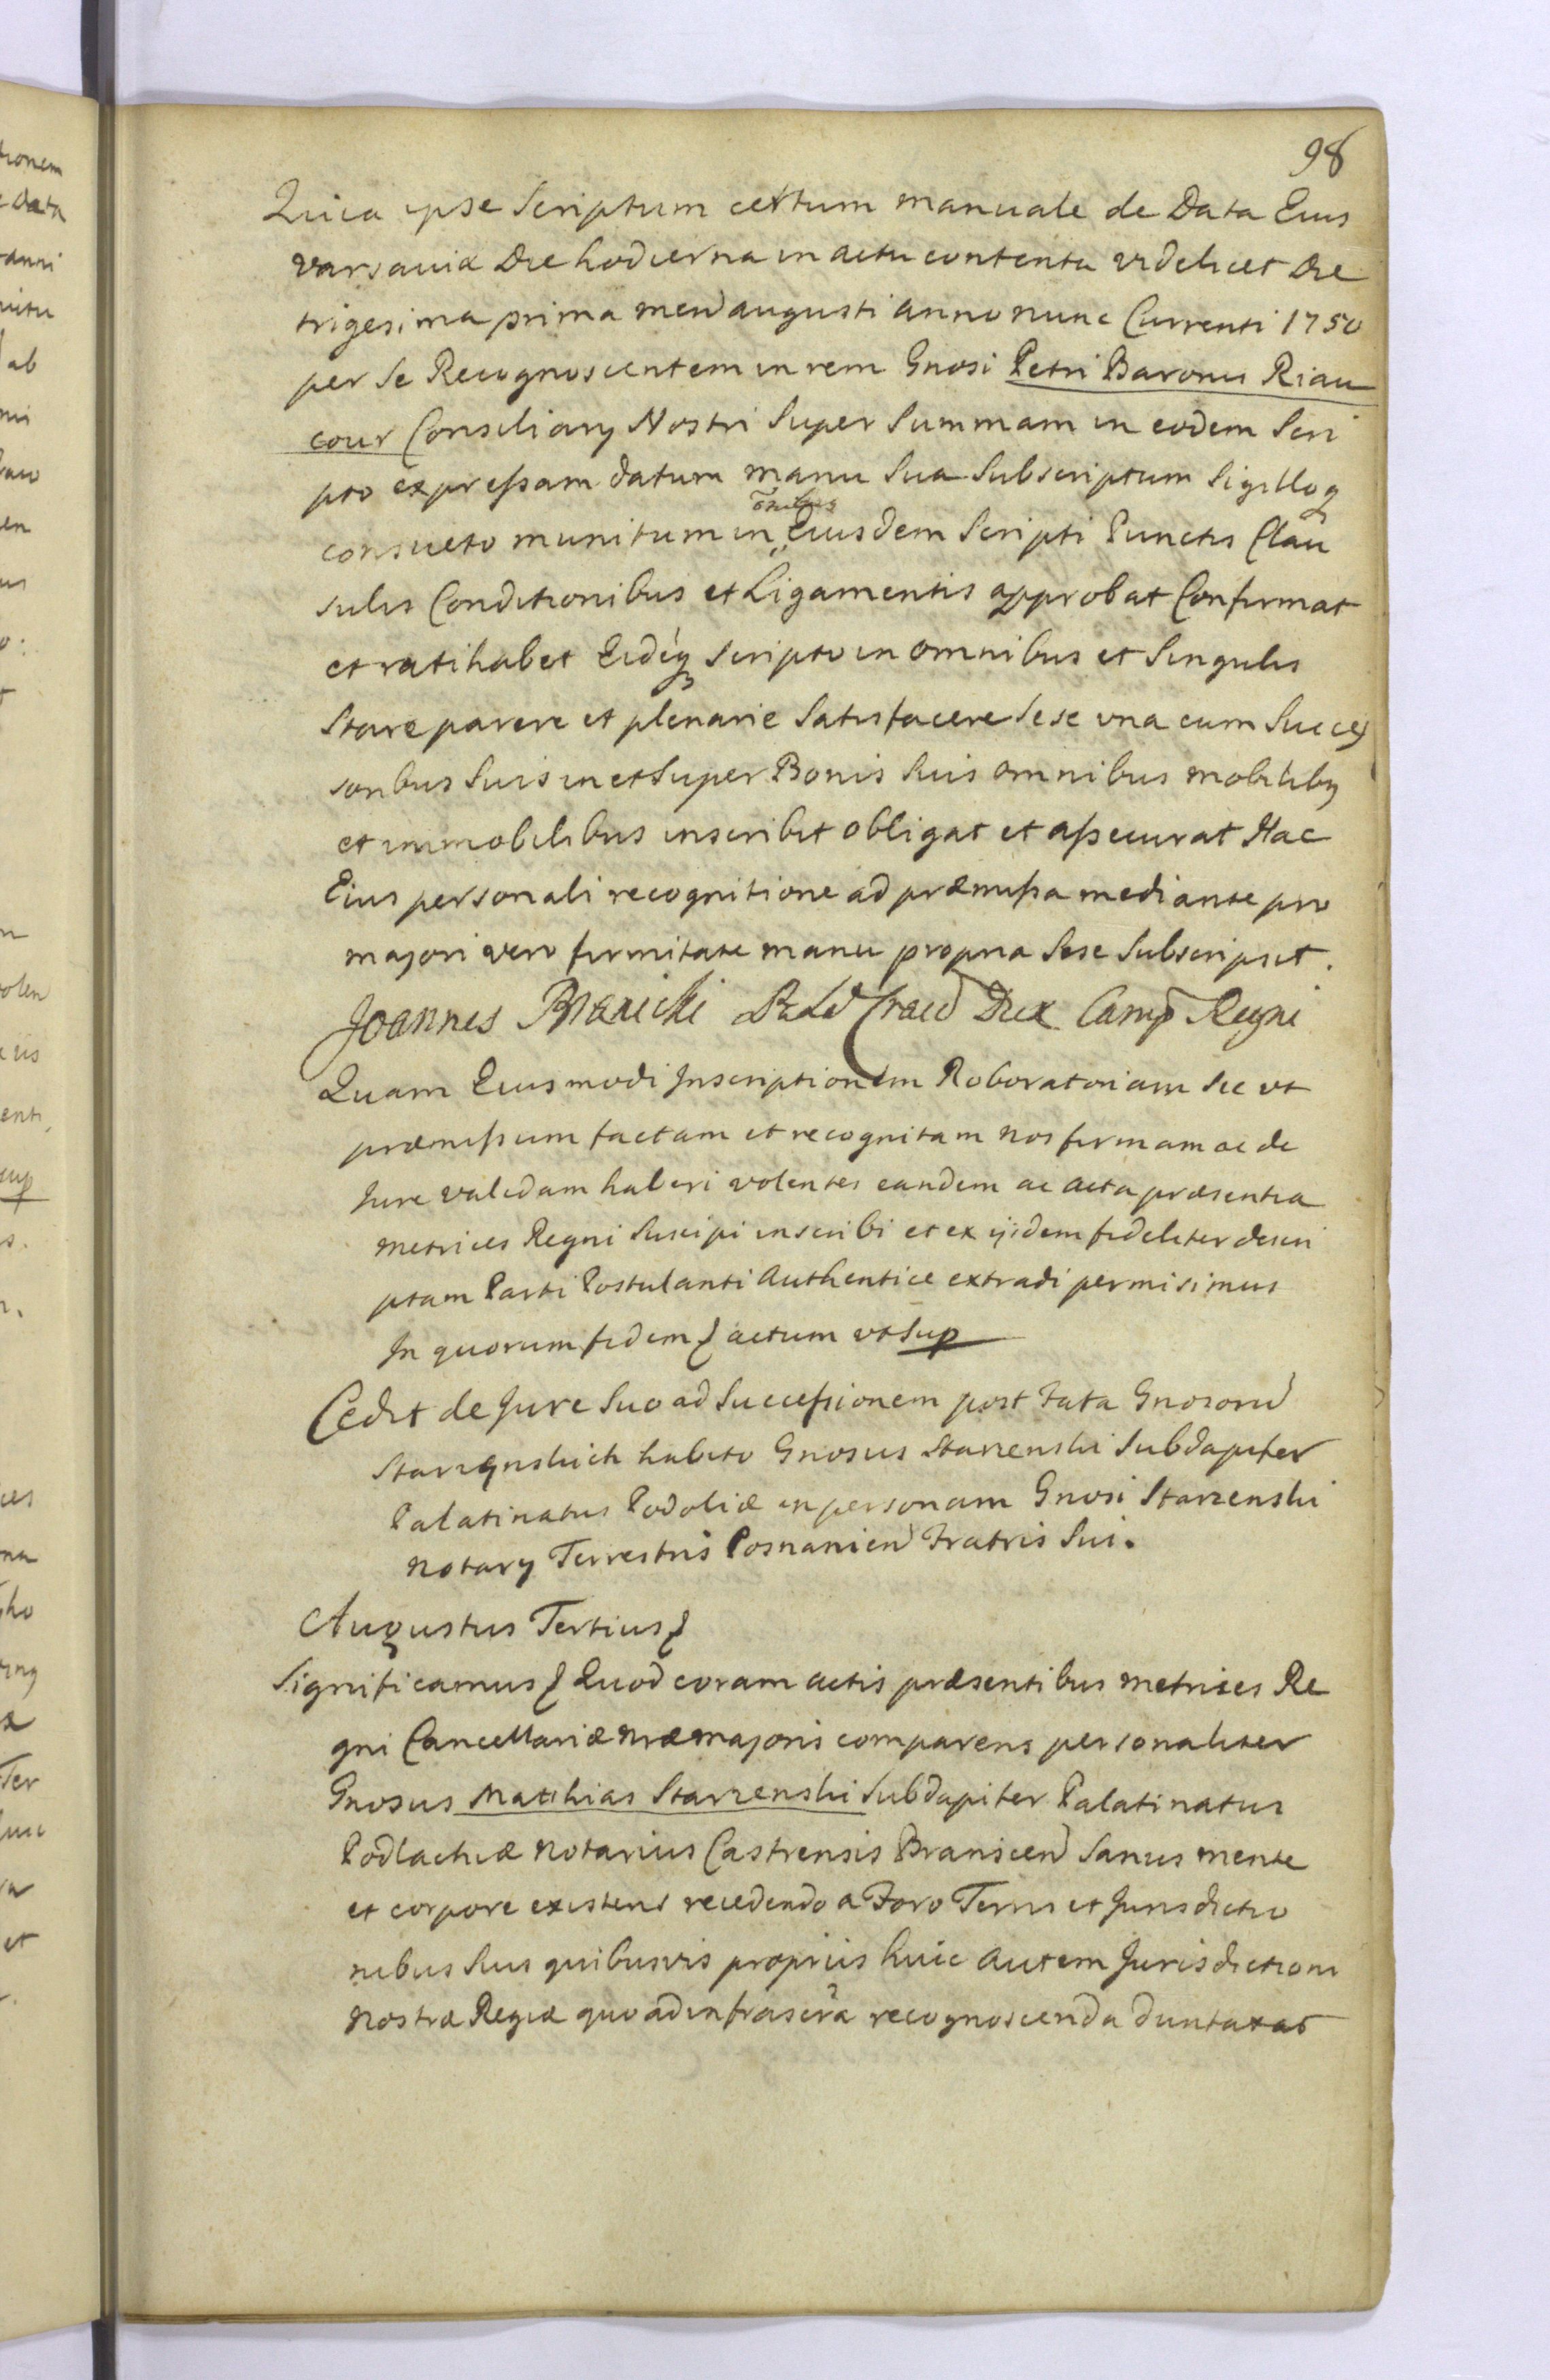 98
Quia ipse Scriptum certum manuale de Data Eius
varsaviæ Die hodierna in actu contenta videlicet Die
trigesima prima mens augusti anno nunc Currenti 1750
per Se Recognoscentem in rem Gnosi Petri Baronis Riau
cour Consiliarÿ Nostri Super Summam in eodem Scri
pto expressam datum manu Sua Subscriptum Sigilloq
consueto munitum in oñibus Eiusdem Scripti Punctis Clau
sulis Conditionibus et Ligamentis approbat Confirmat
et ratihabet Eidēq Scripto in omnibus et Singulis
Stare parere et plenarie Satisfacere Sese una cum Succes
soribus Suis in et Super Bonis Suis omnibus mobilibq
et immobilibus inscribit obligat et assecurat Hac
Eius personali recognitione ad præmissa mediante pro
majori vero firmitate manu propria Sese Subscripsit.
Joannes Branicki Craco Dux Camp Regni
Quam Eiusmodi Inscriptionem Roboratoriam Sic ut
præmissum factam et recognitam nos firmam ac de
Jure validam haberi volentes eandem ac acta præsentia
metrices Regni Suscipi inscribi et ex ijsdem fideliter descri
ptam Parti Postulanti Authentice extradi permisimus
In quorum fidem actum ut Sup
Cedit de Jure Suo ad Successionem post Fata Gnosorū
Starzenskich habito Gnosus Starzenski Subdapifer
Palatinatus Podoliæ in personam Gnosi Starzenski
Notarÿ Terrestris Posnanien Fratris Sui.
Augustus Tertius
Significamus Quod coram actis præsentibus metrices Re
gni Cancellariæ nræ majoris comparens personaliter
Gnosus Matthias Starzenski Subdapifer Palatinatus
Podlachiæ Notarius Castrensis Branscen Sanus mente
et corpore existens recedendo a Foro Terris et Jurisdictio
nibus Suis quibusvis propriis huic autem Jurisdictioni
Nostræ Regiæ quo ad infrascra recognoscenda duntaxat